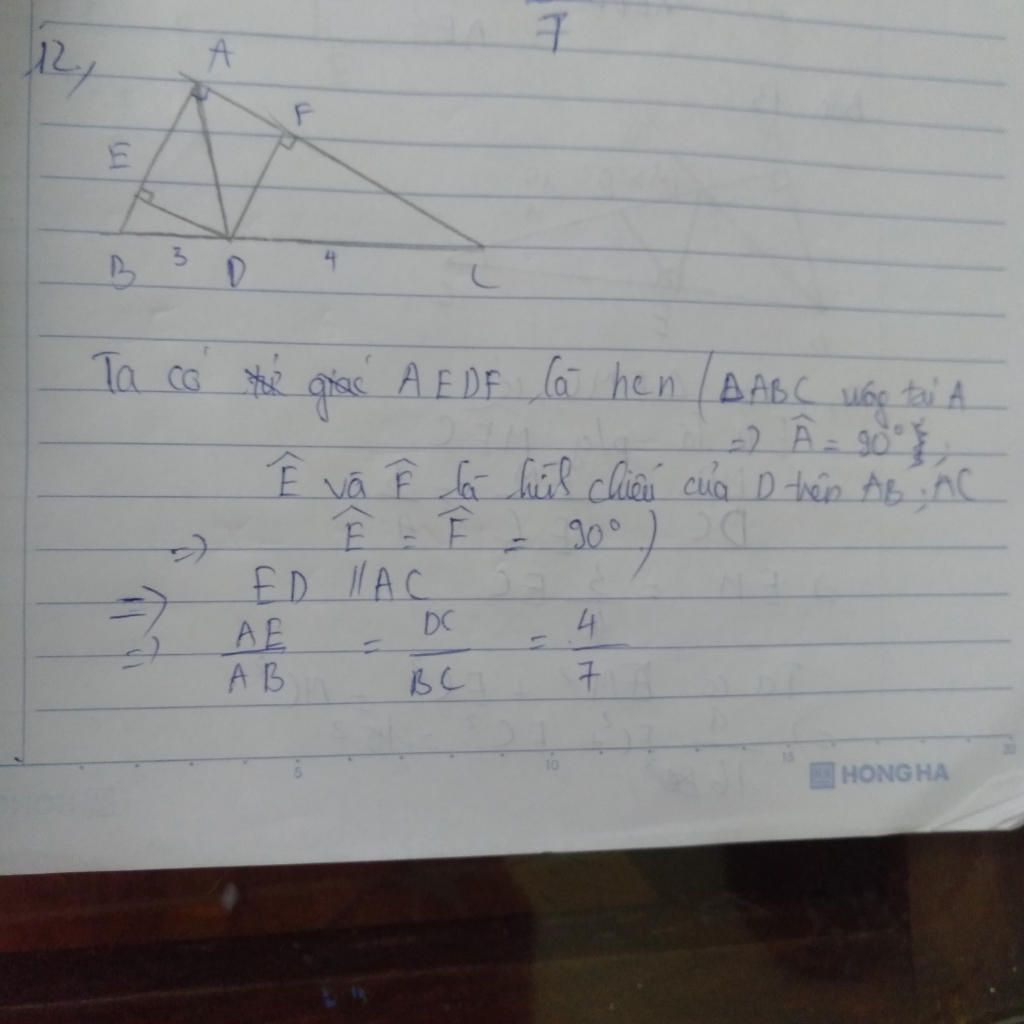 7
12,
A
F
E
B 3 D 4 C
Ta có tứ giác AEDF là hcn (ΔABC vuông tại A
=> Â = 90°;
Ê và F̂ là hình chiếu của D trên AB; AC
=> Ê = F̂ = 90°)
=> ED // AC
=> AE/AB = DC/BC = 4/7
5 10 15 20
HONG HA